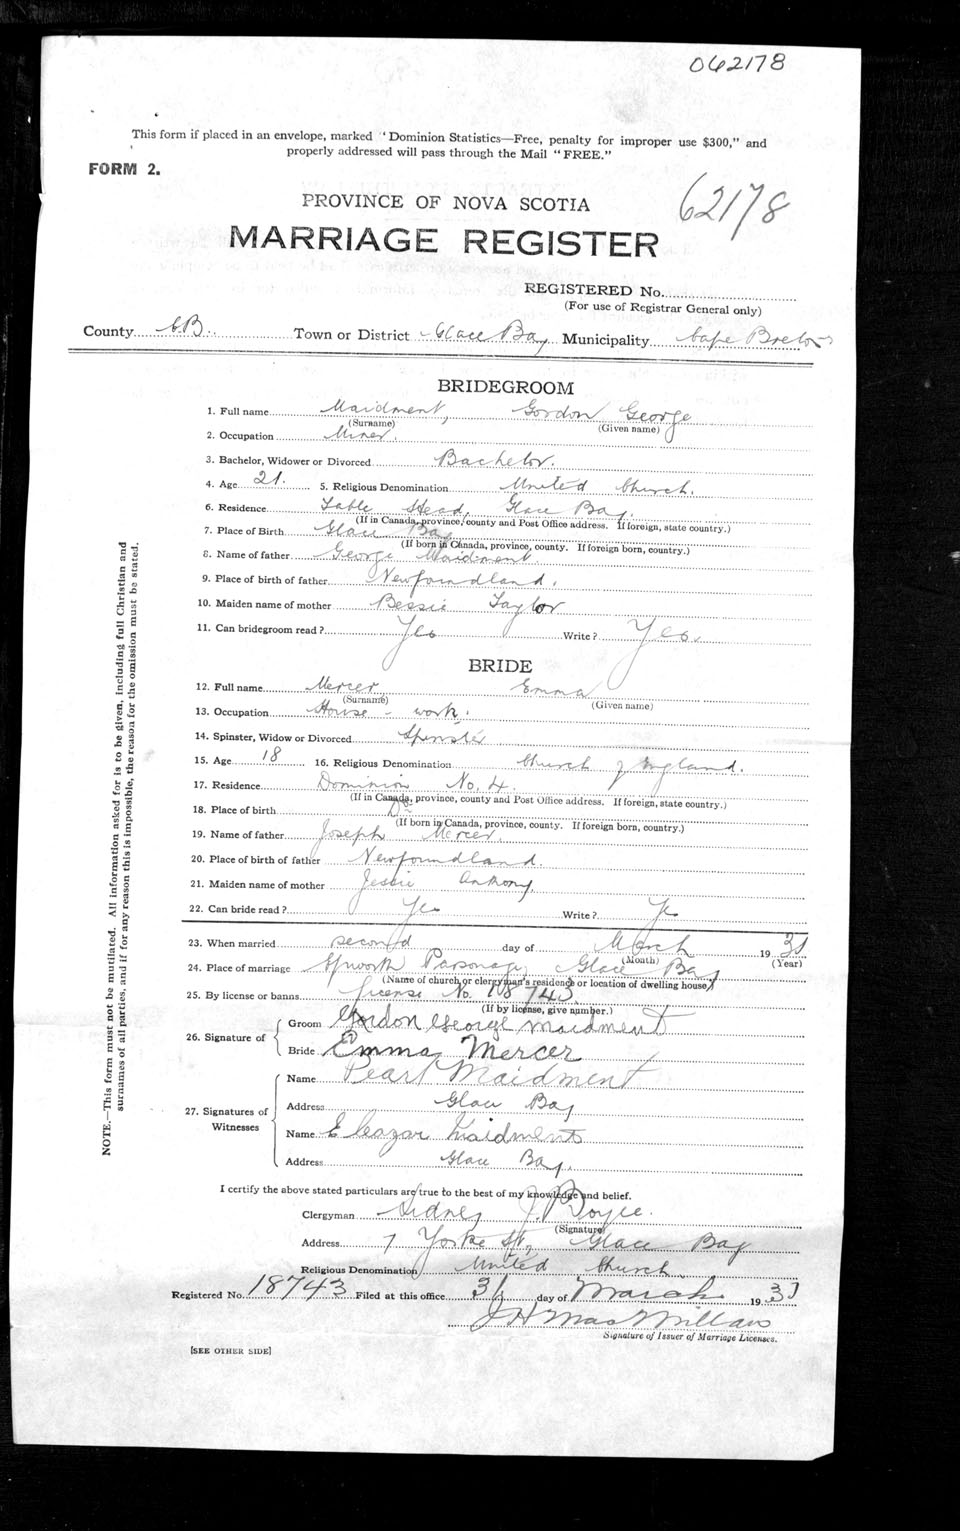 062178
This form if placed in an envelope, marked "Dominion Statistics—Free, penalty for improper use $300," and
properly addressed will pass through the Mail "FREE."
FORM 2.
62178
PROVINCE OF NOVA SCOTIA
MARRIAGE REGISTER
REGISTERED No.
(For use of Registrar General only)
County C.B. Town or District Glace Bay Municipality Cape Breton
BRIDEGROOM
1. Full name Maidment, Gordon George
(Surname) (Given name)
2. Occupation Miner.
3. Bachelor, Widower or Divorced Bachelor.
4. Age 21. 5. Religious Denomination United Church.
6. Residence Table Head, Glace Bay.
(If in Canada, province, county and Post Office address. If foreign, state country.)
7. Place of Birth Glace Bay
(If born in Canada, province, county. If foreign born, country.)
8. Name of father George Maidment.
9. Place of birth of father Newfoundland.
10. Maiden name of mother Bessie Taylor
11. Can bridegroom read? Yes Write? Yes.
BRIDE
12. Full name Mercer Emma
(Surname) (Given name)
13. Occupation House-work.
14. Spinster, Widow or Divorced Spinster
15. Age 18 16. Religious Denomination Church of England.
17. Residence Dominion No. 4.
(If in Canada, province, county and Post Office address. If foreign, state country.)
18. Place of birth Do
(If born in Canada, province, county. If foreign born, country.)
19. Name of father Joseph Mercer.
20. Place of birth of father Newfoundland.
21. Maiden name of mother Jessie Anthony
22. Can bride read? Yes Write? Yes
23. When married second day of March 1931
(Month) (Year)
24. Place of marriage Epworth Parsonage, Glace Bay
(Name of church or clergyman's residence or location of dwelling house)
25. By license or banns License No. 18743.
(If by license, give number.)
26. Signature of
Groom Gordon George Maidment
Bride Emma Mercer
27. Signatures of Witnesses
Name Pearl Maidment
Address Glace Bay
Name Eleazar Maidment
Address Glace Bay.
I certify the above stated particulars are true to the best of my knowledge and belief.
Clergyman Sidney J. Boyce.
(Signature)
Address 7 Yorke St., Glace Bay
Religious Denomination United Church.
Registered No. 18743 Filed at this office 31 day of March 1931
J H MacMillan
Signature of Issuer of Marriage Licenses.
[SEE OTHER SIDE]
NOTE.—This form must not be mutilated. All information asked for is to be given, including full Christian and
surnames of all parties, and if for any reason this is impossible, the reason for the omission must be stated.